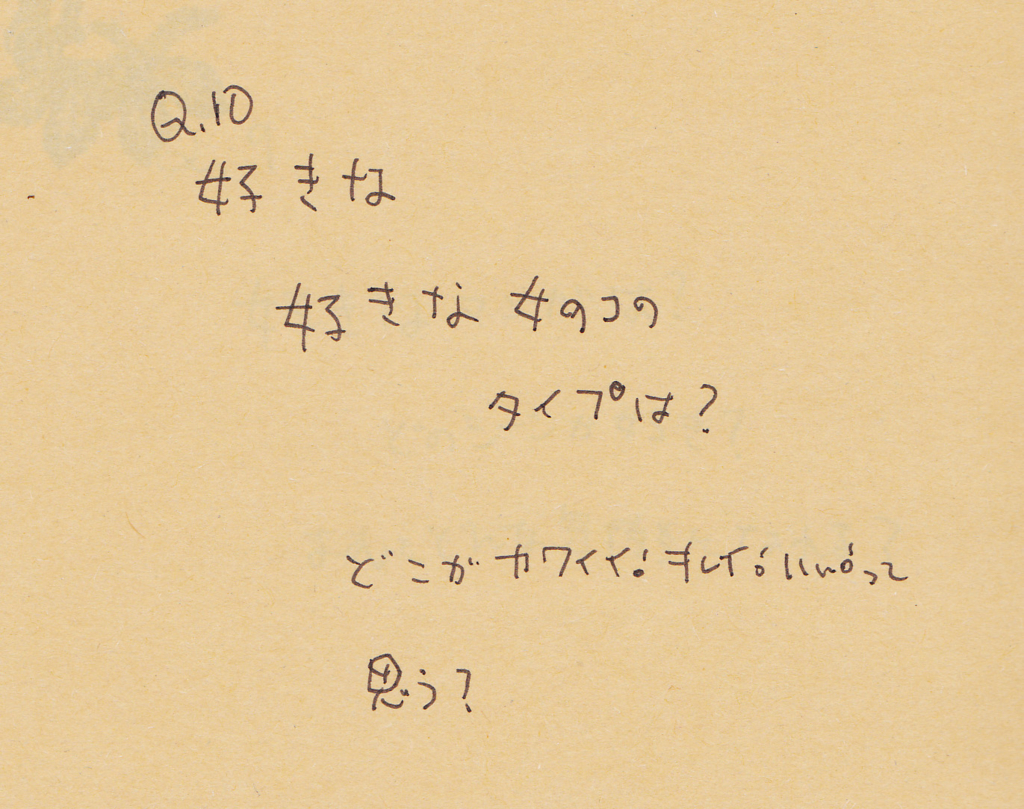 Q.10
好きな
好きな女のコの
タイプは?
どこがカワイイ!キレイ!いい!って
思う?